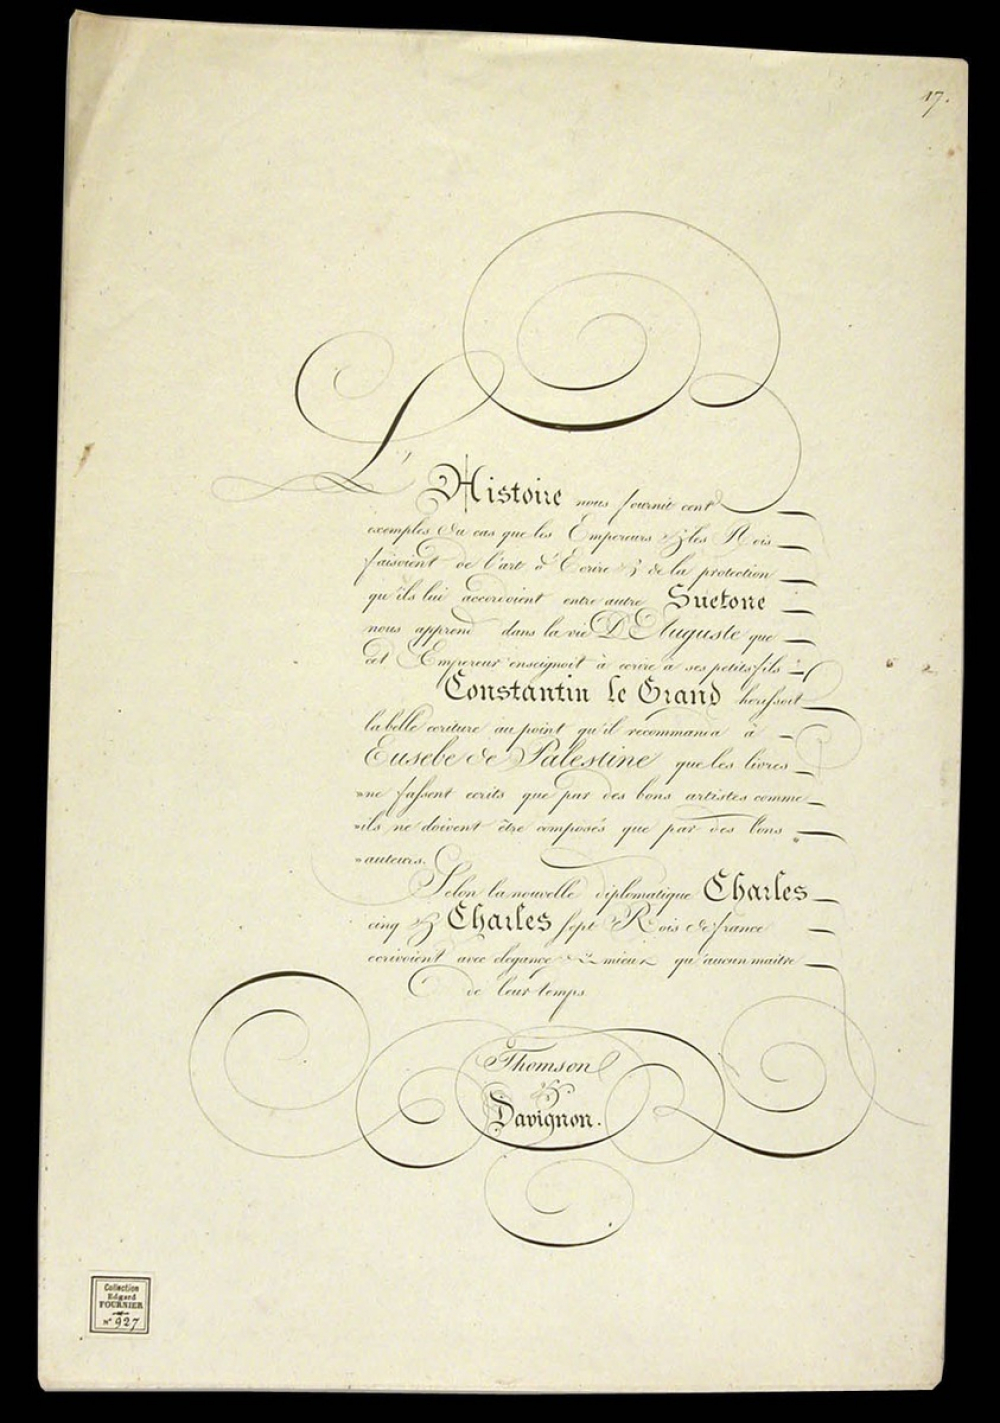 17.
L'Histoire nous fournit cent
exemples du cas que les Empereurs & les Rois
faisoient de l'art d'Ecrire & de la protection
qu'ils lui accordoient entre autre Suetone
nous apprend dans la vie D'Auguste que
cet Empereur enseignoit à ecrire à ses petits fils
Constantin le Grand
la belle ecriture au point qu'il recommanda à
Eusebe de Palestine que les livres
"ne fussent ecrits que par des bons artistes comme
"ils ne doivent être composés que par des bons
"auteurs.
Selon la nouvelle diplomatique Charles
cinq & Charles sept Rois de france
ecrivoient avec elegance & mieux qu'aucun maître
de leur temps
Thomson
&
Davignon.
Collection
Edgard
FOURNIER
N° 927